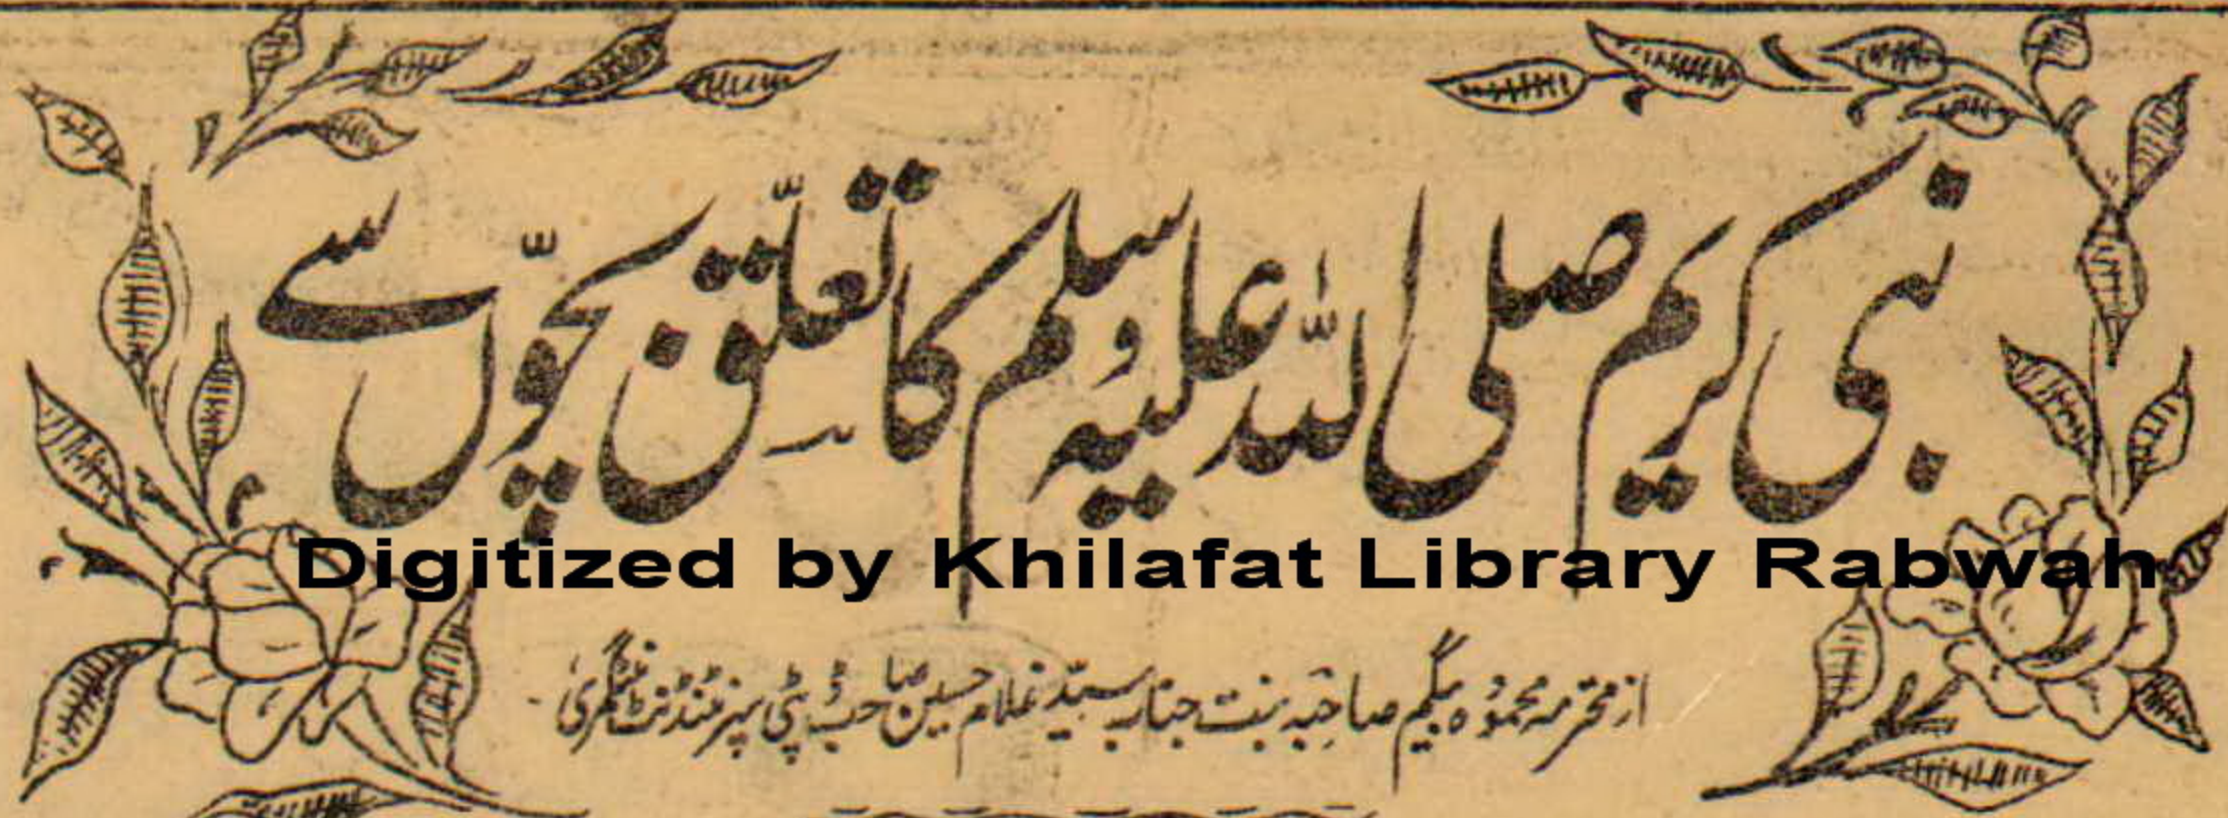 نبی کریم صلی اللہ علیہ وسلم کا تعلّق بچّوں سے
Digitized by Khilafat Library Rabwah
از محترمہ محمودہ بیگم صاحبہ بنت جناب سیّد غلام حسین صاحب ڈپٹی سپرنٹنڈنٹ منٹگمری